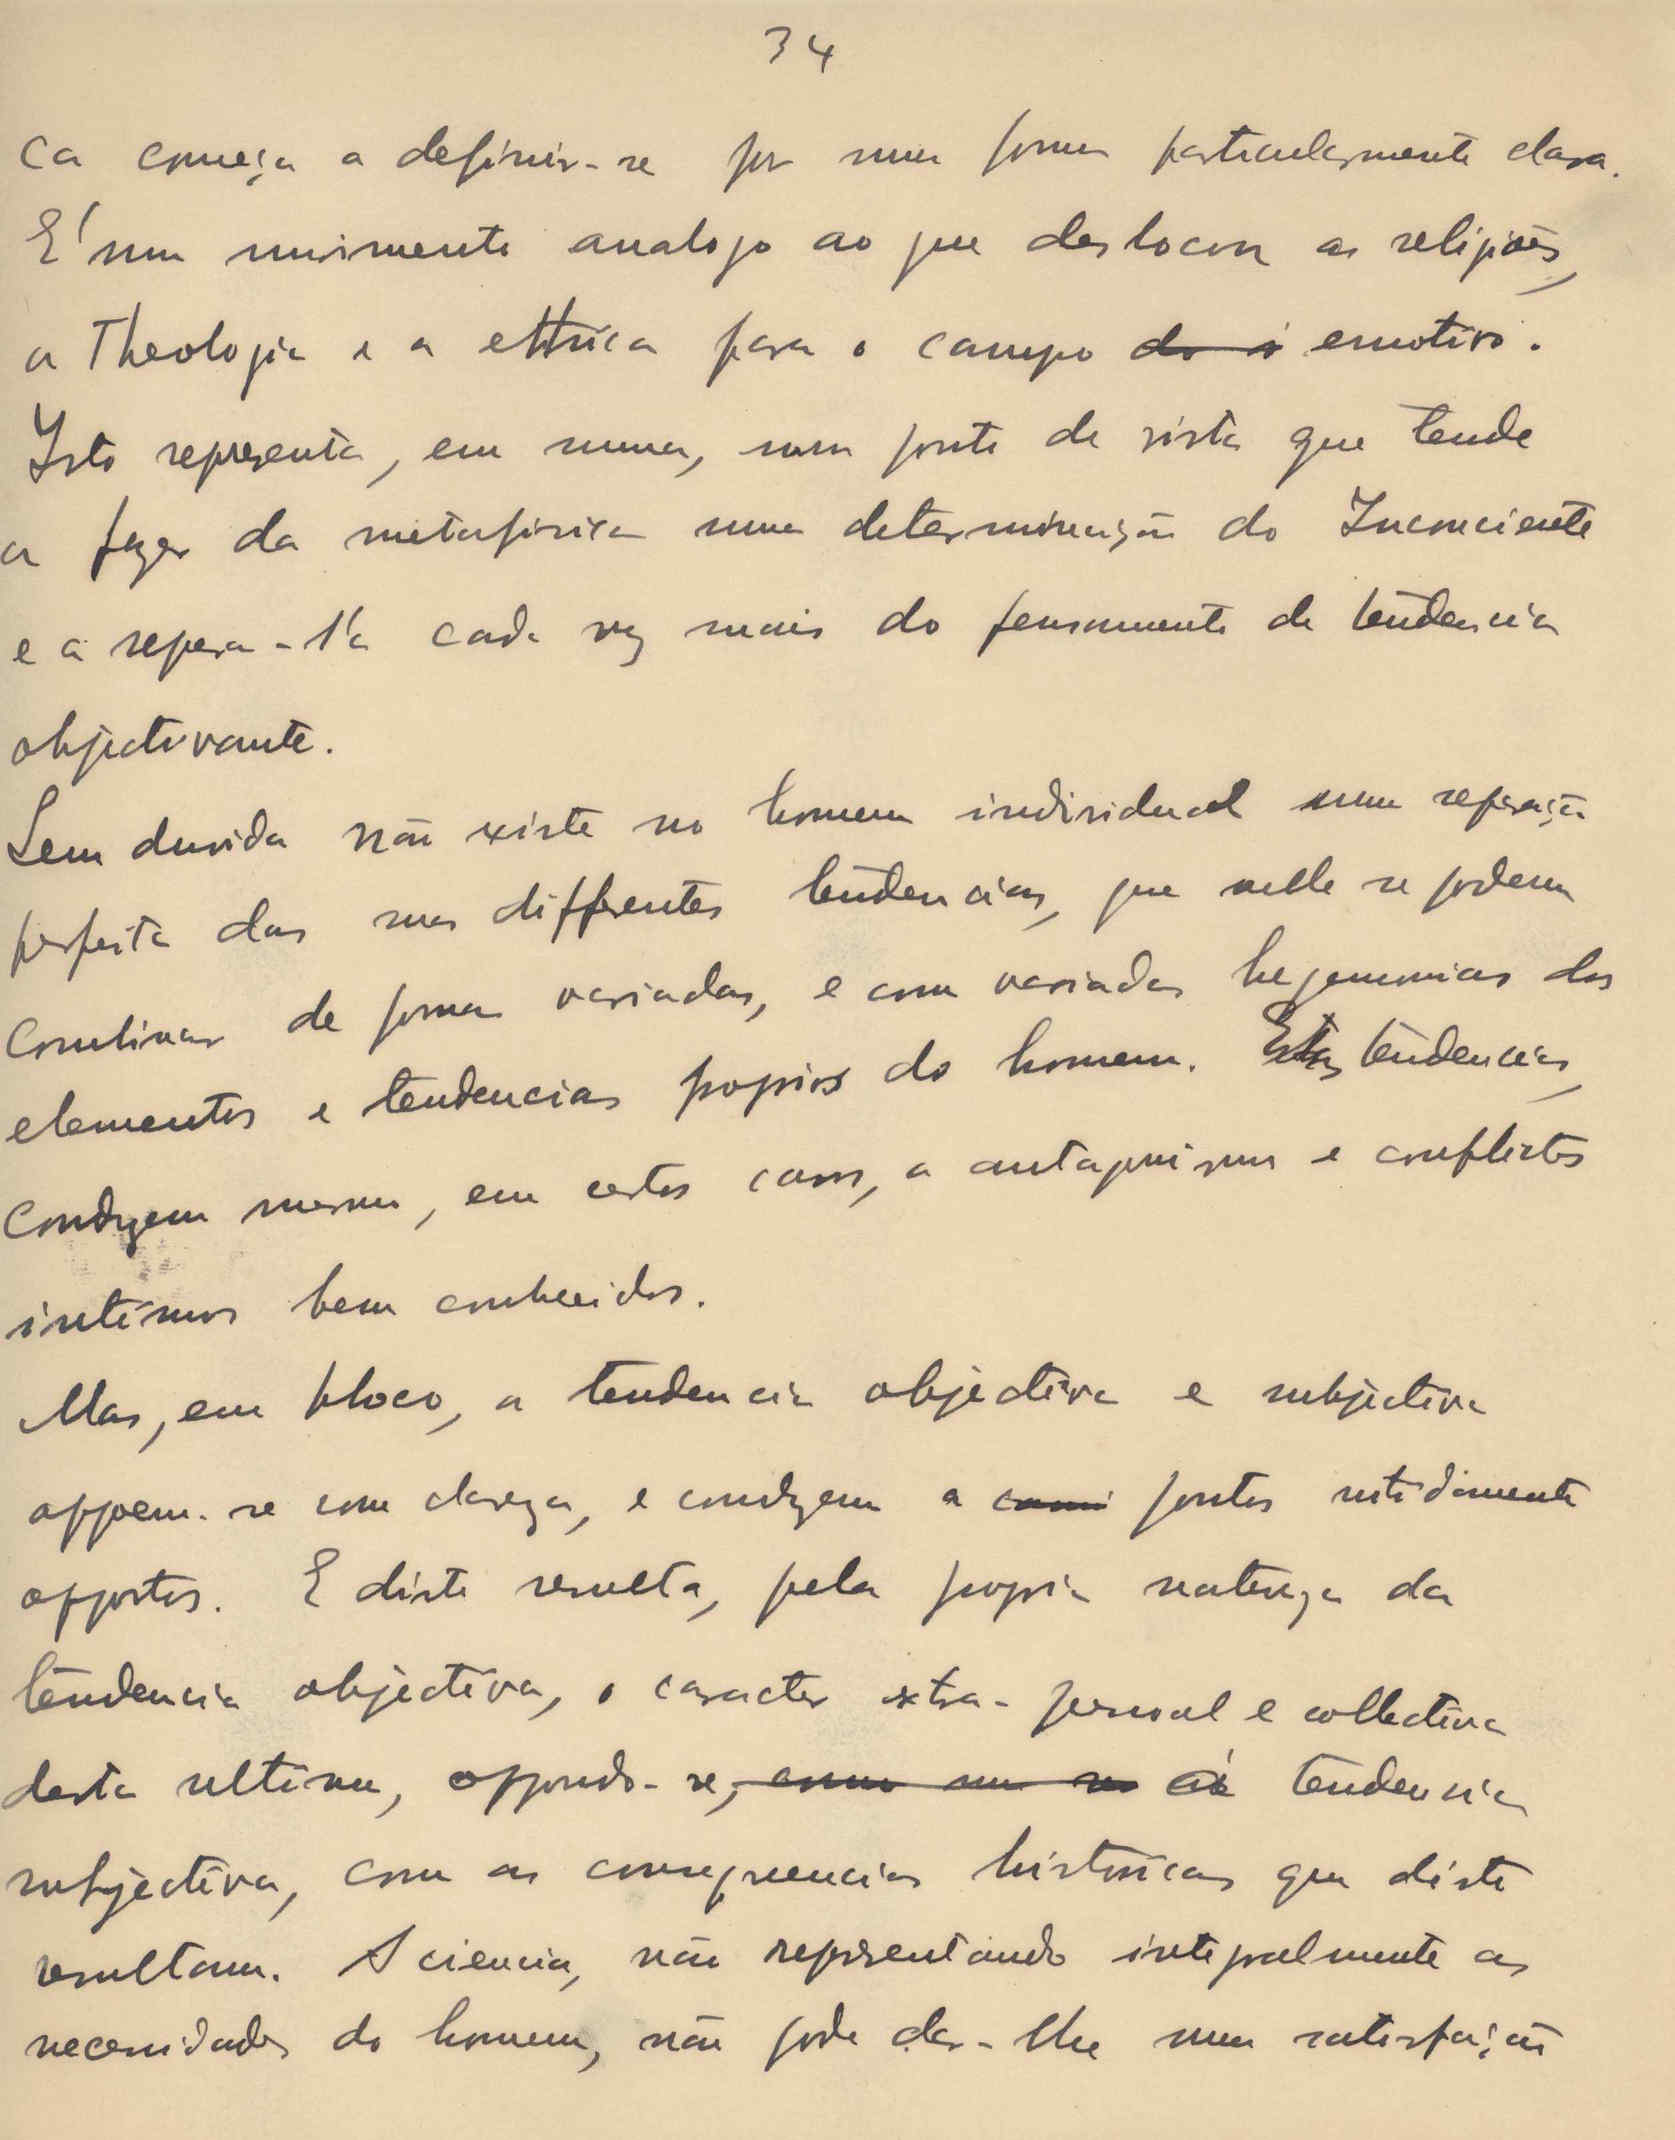 34
ca começa a definir-se por uma forma particularmente clara.
E' um movimento analogo ao que deslocou as religiões,
a Theologia e a ethica para o campo do s emotivo.
Isto representa, em summa, um ponto de vista que tende
a fazer da metafisica uma determinação do Inconciente
e a separa-l'a cada vez mais do pensamento de tendencia
objectivante.
Sem duvida não existe no homem individual uma separação
perfeita das suas differentes tendencias, que nelle se podem
combinar de formas variadas, e com variadas hegemonias dos
elementos e tendencias proprios do homem. Estas tendencias,
conduzem mesmo, em certos casos, a antagonismos e conflictos
intimos bem conhecidos.
Mas, em bloco, a tendencia objectiva e subjectiva
oppoem-se com clareza, e conduzem a pontos nitidamente
oppostos. E disto resulta, pela propria natureza da
tendencia objectiva, o caracter extra-pessoal e collectivo
desta ultima, oppondo-se, como um á tendencia
subjectiva, com as consequencias historicas que disto
resultam. A sciencia, não representando integralmente as
necessidades do homem, não pode dar-lhe uma satisfação